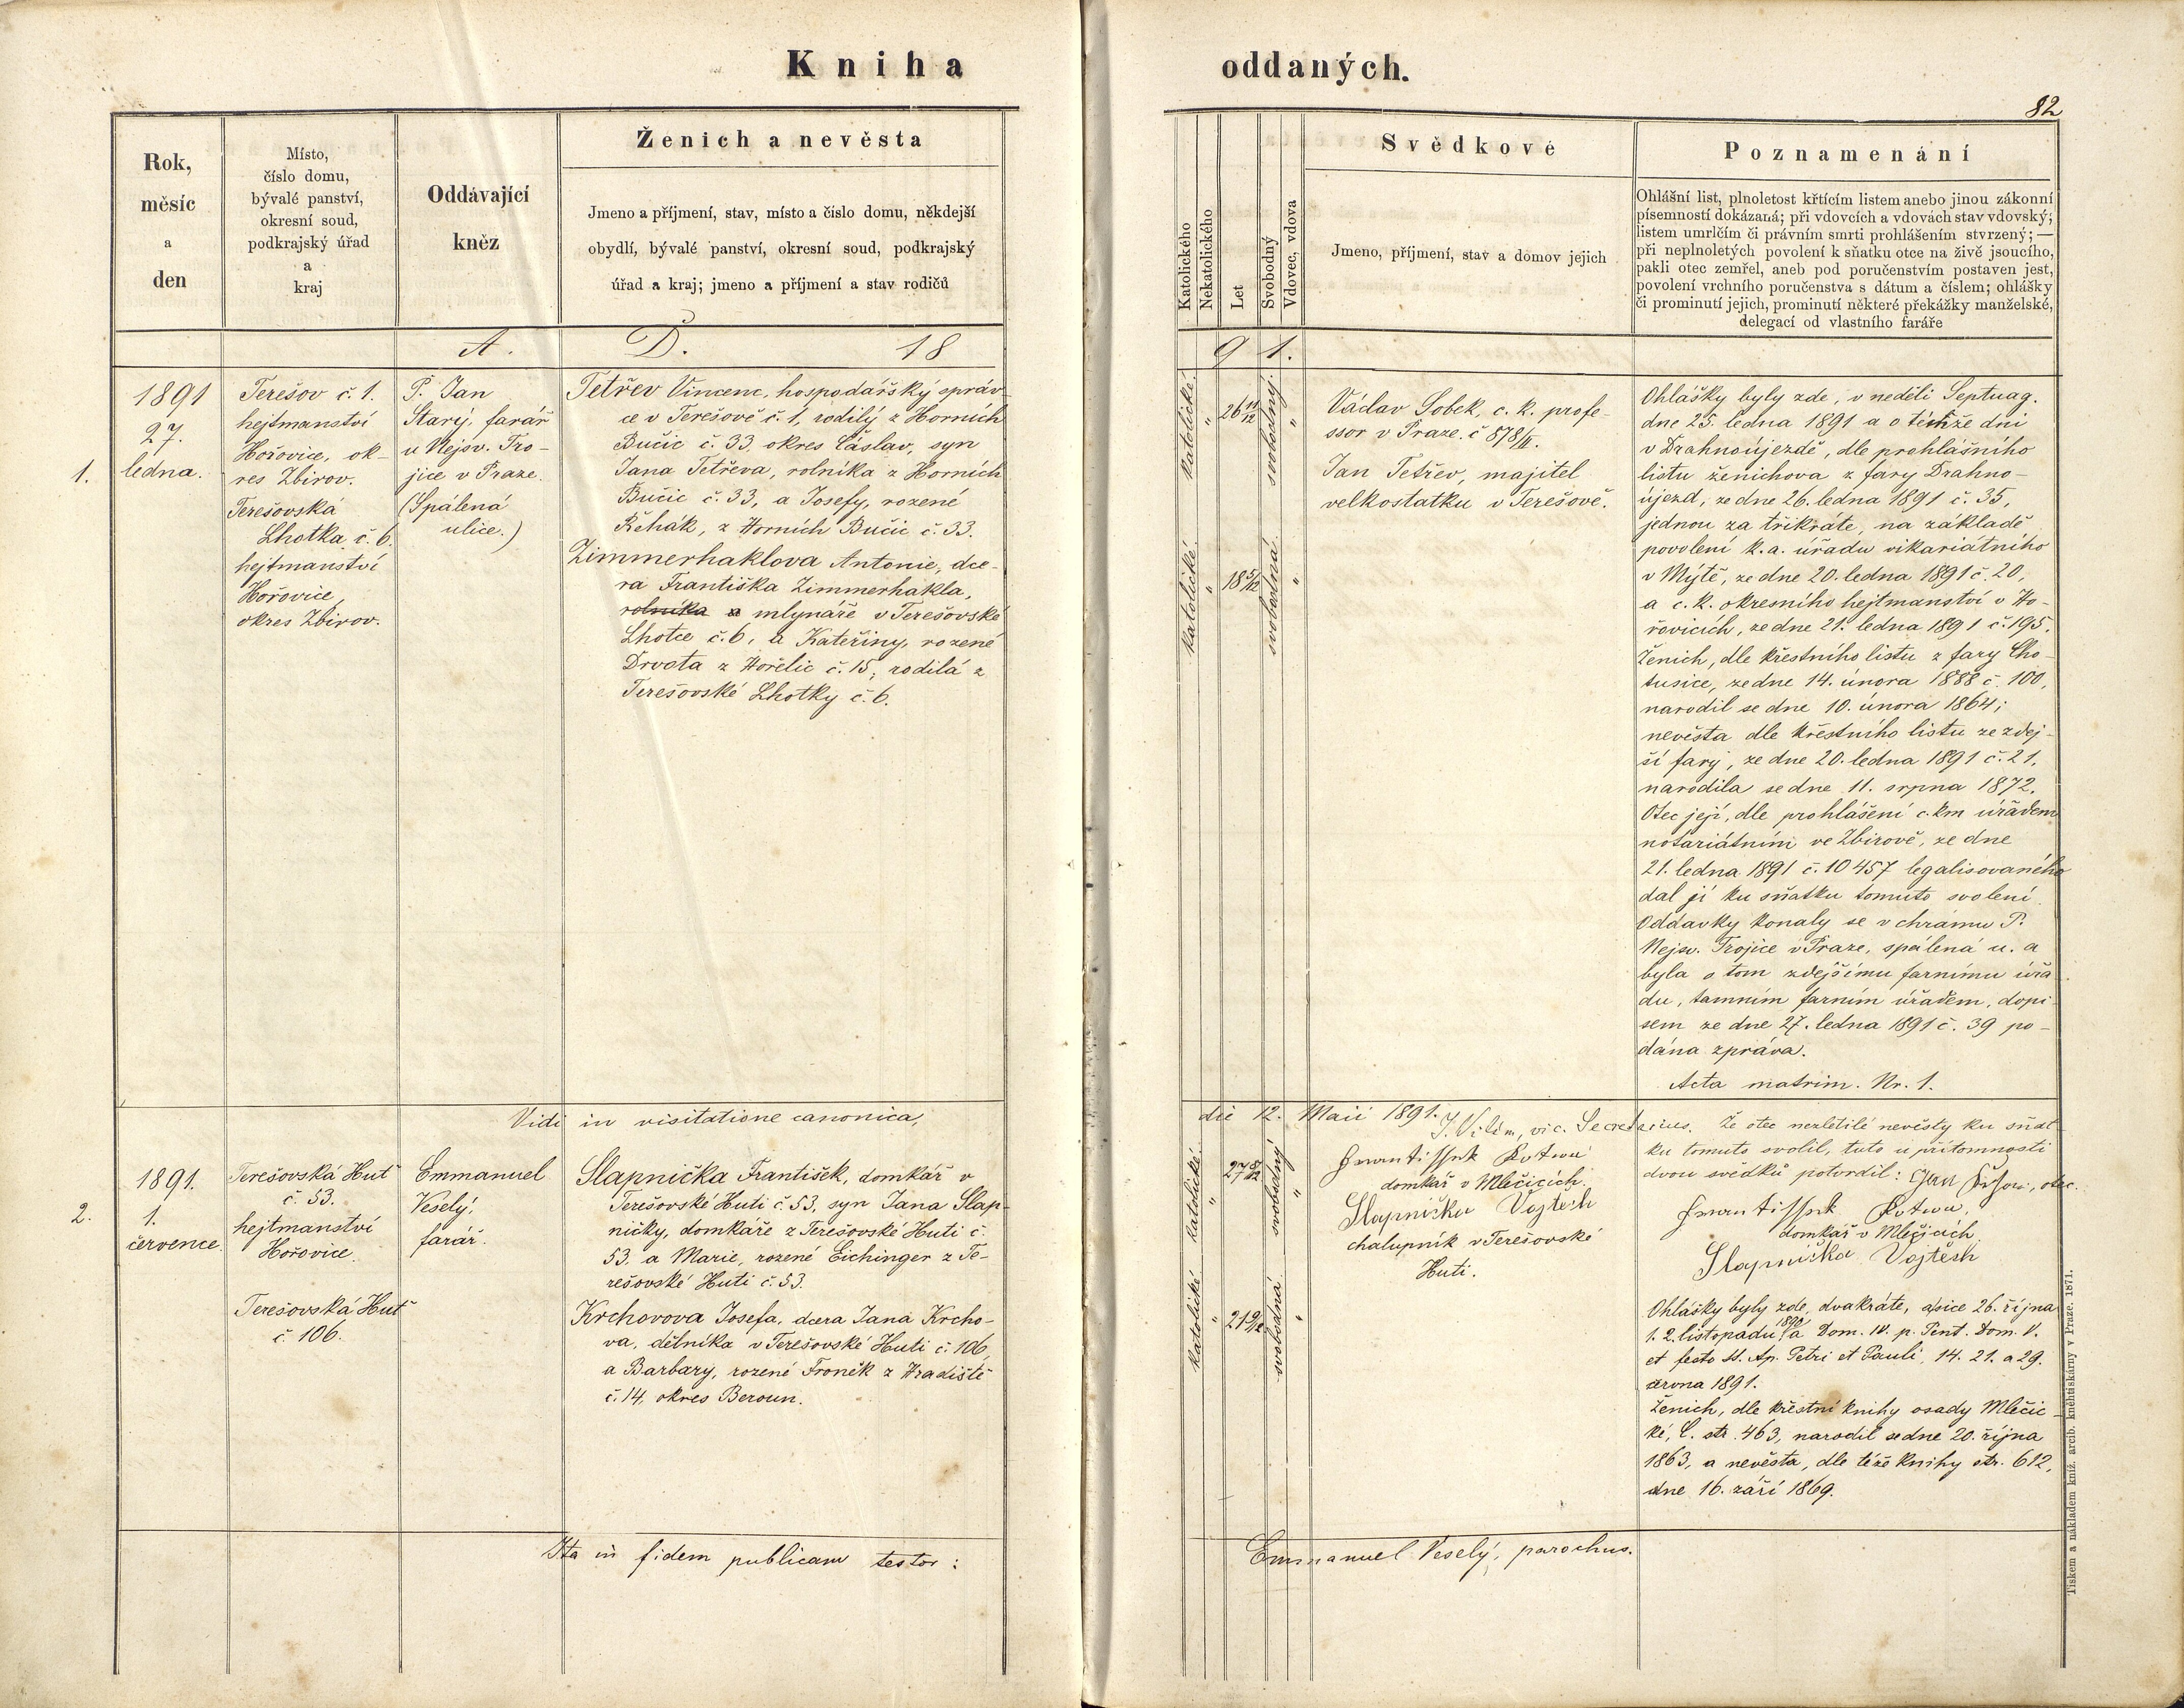 Kniha
oddaných.
82
Rok,
měsíc
a
den
Místo,
číslo domu,
bývalé panství,
okresní soud,
podkrajský úřad
a
kraj
Oddávající
kněz
Ženich a nevěsta
Jmeno a příjmení, stav, místo a číslo domu, někdejší
obydlí, bývalé panství, okresní soud, podkrajský
úřad a kraj; jmeno a příjmení a stav rodičů
Katolického
Nekatolického
Let
Svobodný
Vdovec, vdova
Svědkové
Jmeno, příjmení, stav a domov jejich
Poznamenání
Ohlášní list, plnoletost křtícím listem anebo jinou zákonní
písemností dokázaná; při vdovcích a vdovách stav vdovský;
listem umrlčím či právním smrti prohlášením stvrzený; —
při neplnoletých povolení k sňatku otce na živě jsoucího,
pakli otec zemřel, aneb pod poručenstvím postaven jest,
povolení vrchního poručenstva s dátum a číslem; ohlášky
či prominutí jejich, prominutí některé překážky manželské,
delegací od vlastního faráře
A. D. 18 91.
1.
1891
27.
ledna.
Terešov č. 1.
hejtmanství
Hořovice, ok-
res Zbirov.
Terešovská
Lhotka č. 6.
hejtmanství
Hořovice,
okres Zbirov.
P. Jan
Starý, farář
u Nejsv. Tro-
jice v Praze.
(Spálená
ulice.)
Tetřev Vincenc, hospodářský správ-
ce v Terešově č. 1, rodilý z Horních
Bučic č. 33, okres Čáslav, syn
Jana Tetřeva, rolníka z Horních
Bučic č. 33, a Josefy, rozené
Řehák, z Horních Bučic č. 33.
Zimmerhaklova Antonie, dce-
ra Františka Zimmerhakla,
rolníka a mlynáře v Terešovské
Lhotce č. 6, a Kateřiny, rozené
Drvota z Hořelic č. 15, rodilá z
Terešovské Lhotky č. 6.
katolické
"
26 11/12
svobodný
"
katolické
"
18 5/12
svobodná
"
Václav Sobek, c. k. profe-
ssor v Praze. č 878/II.
Jan Tetřev, majitel
velkostatku v Terešově.
Ohlášky byly zde, v neděli Septuag.
dne 25. ledna 1891 a o témže dni
v Drahnoújezdě, dle prohlášního
listu ženichova z fary Drahno-
újezd, ze dne 26. ledna 1891 č. 35,
jednou za třikráte, na základě
povolení k. a. úřadu vikariátního
v Mýtě, ze dne 20. ledna 1891 č. 20,
a c. k. okresního hejtmanství v Ho-
řovicích, ze dne 21. ledna 1891 č. 195.
Ženich, dle křestního listu z fary Cho-
tusice, ze dne 14. února 1888 č. 100,
narodil se dne 10. února 1864;
nevěsta dle křestního listu ze zdej-
ší fary, ze dne 20. ledna 1891 č. 21.
narodila se dne 11. srpna 1872.
Otec její, dle prohlášení c. km úřadem
notariátním ve Zbirově, ze dne
21. ledna 1891 č. 10457 legalisovaného
dal jí ku sňatku tomuto svolení.
Oddavky konaly se v chrámu P.
Nejsv. Trojice v Praze, spálená u. a
byla o tom zdejšímu farnímu úřa
du, tamním farním úřadem, dopi
sem ze dne 27. ledna 1891 č. 39 po-
dána zpráva.
Acta matrim. Nr. 1.
Vidi in visitatione canonica, die 12. Maii 1891. J. Vilím, vic. Secretarius.
2.
1891.
1.
července.
Terešovská Huť
č. 53.
hejtmanství
Hořovice.
Terešovská Huť
č. 106.
Emmanuel
Veselý,
farář.
Slapnička František, domkář v
Terešovské Huti č. 53, syn Jana Slap-
ničky, domkáře z Terešovské Huti č.
53, a Marie, rozené Eichinger z Te-
rešovské Huti č. 53.
Krchovova Josefa, dcera Jana Krcho-
va, dělníka v Terešovské Huti č. 106,
a Barbary, rozené Froněk z Hradiště
č. 14, okres Beroun.
katolické
"
27 8/12
svobodný
"
katolické
"
21 9/12
svobodná
"
domkář v Mlečicích.
Slapnička Vojtěch
chalupník v Terešovské
Huti.
Že otec nezletilé nevěsty ku sňat
ku tomuto svolil, tuto u přítomnosti
dvou svědků potvrdil:
otec.
domkář v Mlečicích
Slapnička Vojtěch
Ohlášky byly zde, dvakráte, a sice 26. října
1. 2. listopadu 1890 a Dom. IV. p. Pent. Dom. V.
et festo SS. Ap. Petri et Pauli, 14. 21. a 29.
června 1891.
Ženich, dle křestní knihy osady Mlečic-
ké, C. str. 463, narodil se dne 20. října
1863, a nevěsta, dle téže knihy str. 612,
dne 16. září 1869.
Ita in fidem publicam testor: Emmanuel Veselý, parochus.
Tiskem a nákladem kníž. arcib. kněhtiskárny v Praze. 1871.